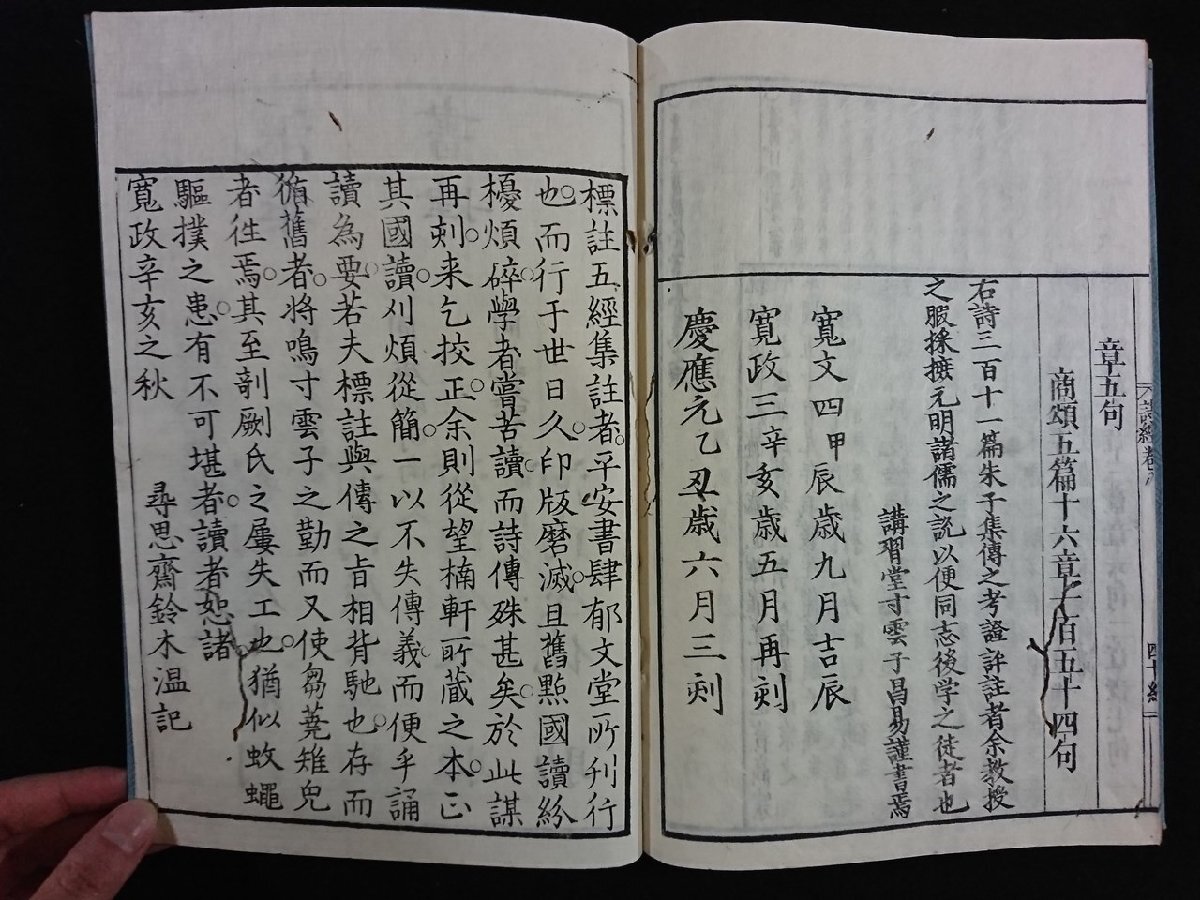 章五句
商頌五篇十六章一百五十四句
右詩三百十一篇朱子集傳之考證許註者余教授
之暇採摭元明諸儒之説以便同志後学之徒者也
講習堂寸雲子昌易謹書焉
寛文四甲辰歳九月吉辰
寛政三辛亥歳五月再刻
慶應元乙丑歳六月三刻
詩經卷八
四十終
標註五經集註者。平安書肆郁文堂所刋行
也。而行于世日久。印版磨滅。且舊點國讀紛
擾煩碎。學者嘗苦讀。而詩傳殊甚矣。於此謀
再刻。来乞挍正。余則從望楠軒所藏之本。正
其國讀。刈煩從簡。一以不失傳義。而便乎誦
讀為要。若夫標註與傳之旨相背馳也。存而
循舊者。将鳴寸雲子之勤。而又使芻蕘雉兔
者徃焉。其至剞劂氏之屢失工也。猶似蚊蠅
驅撲之患。有不可堪者。讀者恕諸
寬政辛亥之秋
尋思齋鈴木温記